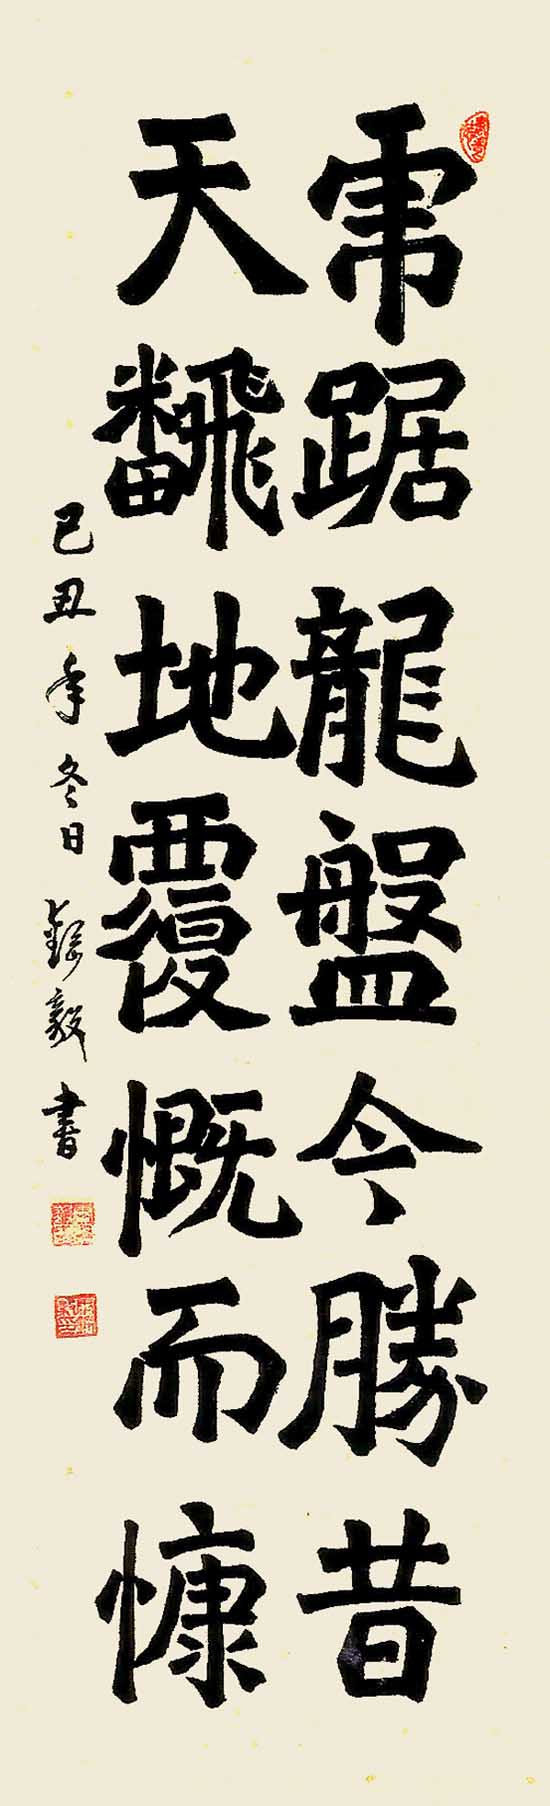 虎踞龍盤今勝昔
天飜地覆慨而慷
己丑年冬日
毅書